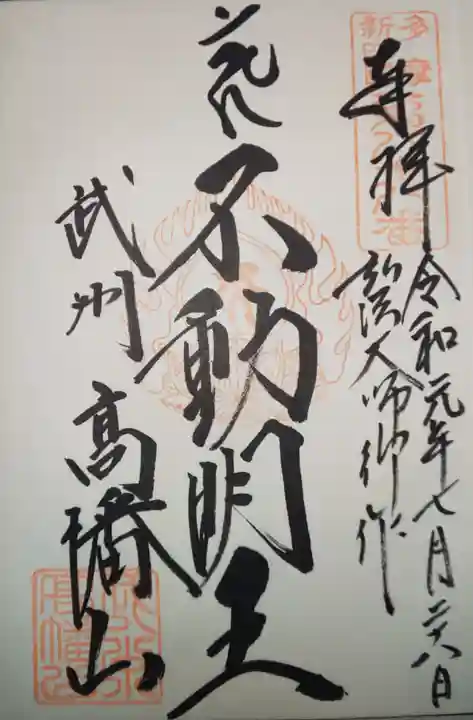 奉拝 令和元年七月二十八日
弘法大師御作
不動明王
武州 高幡山